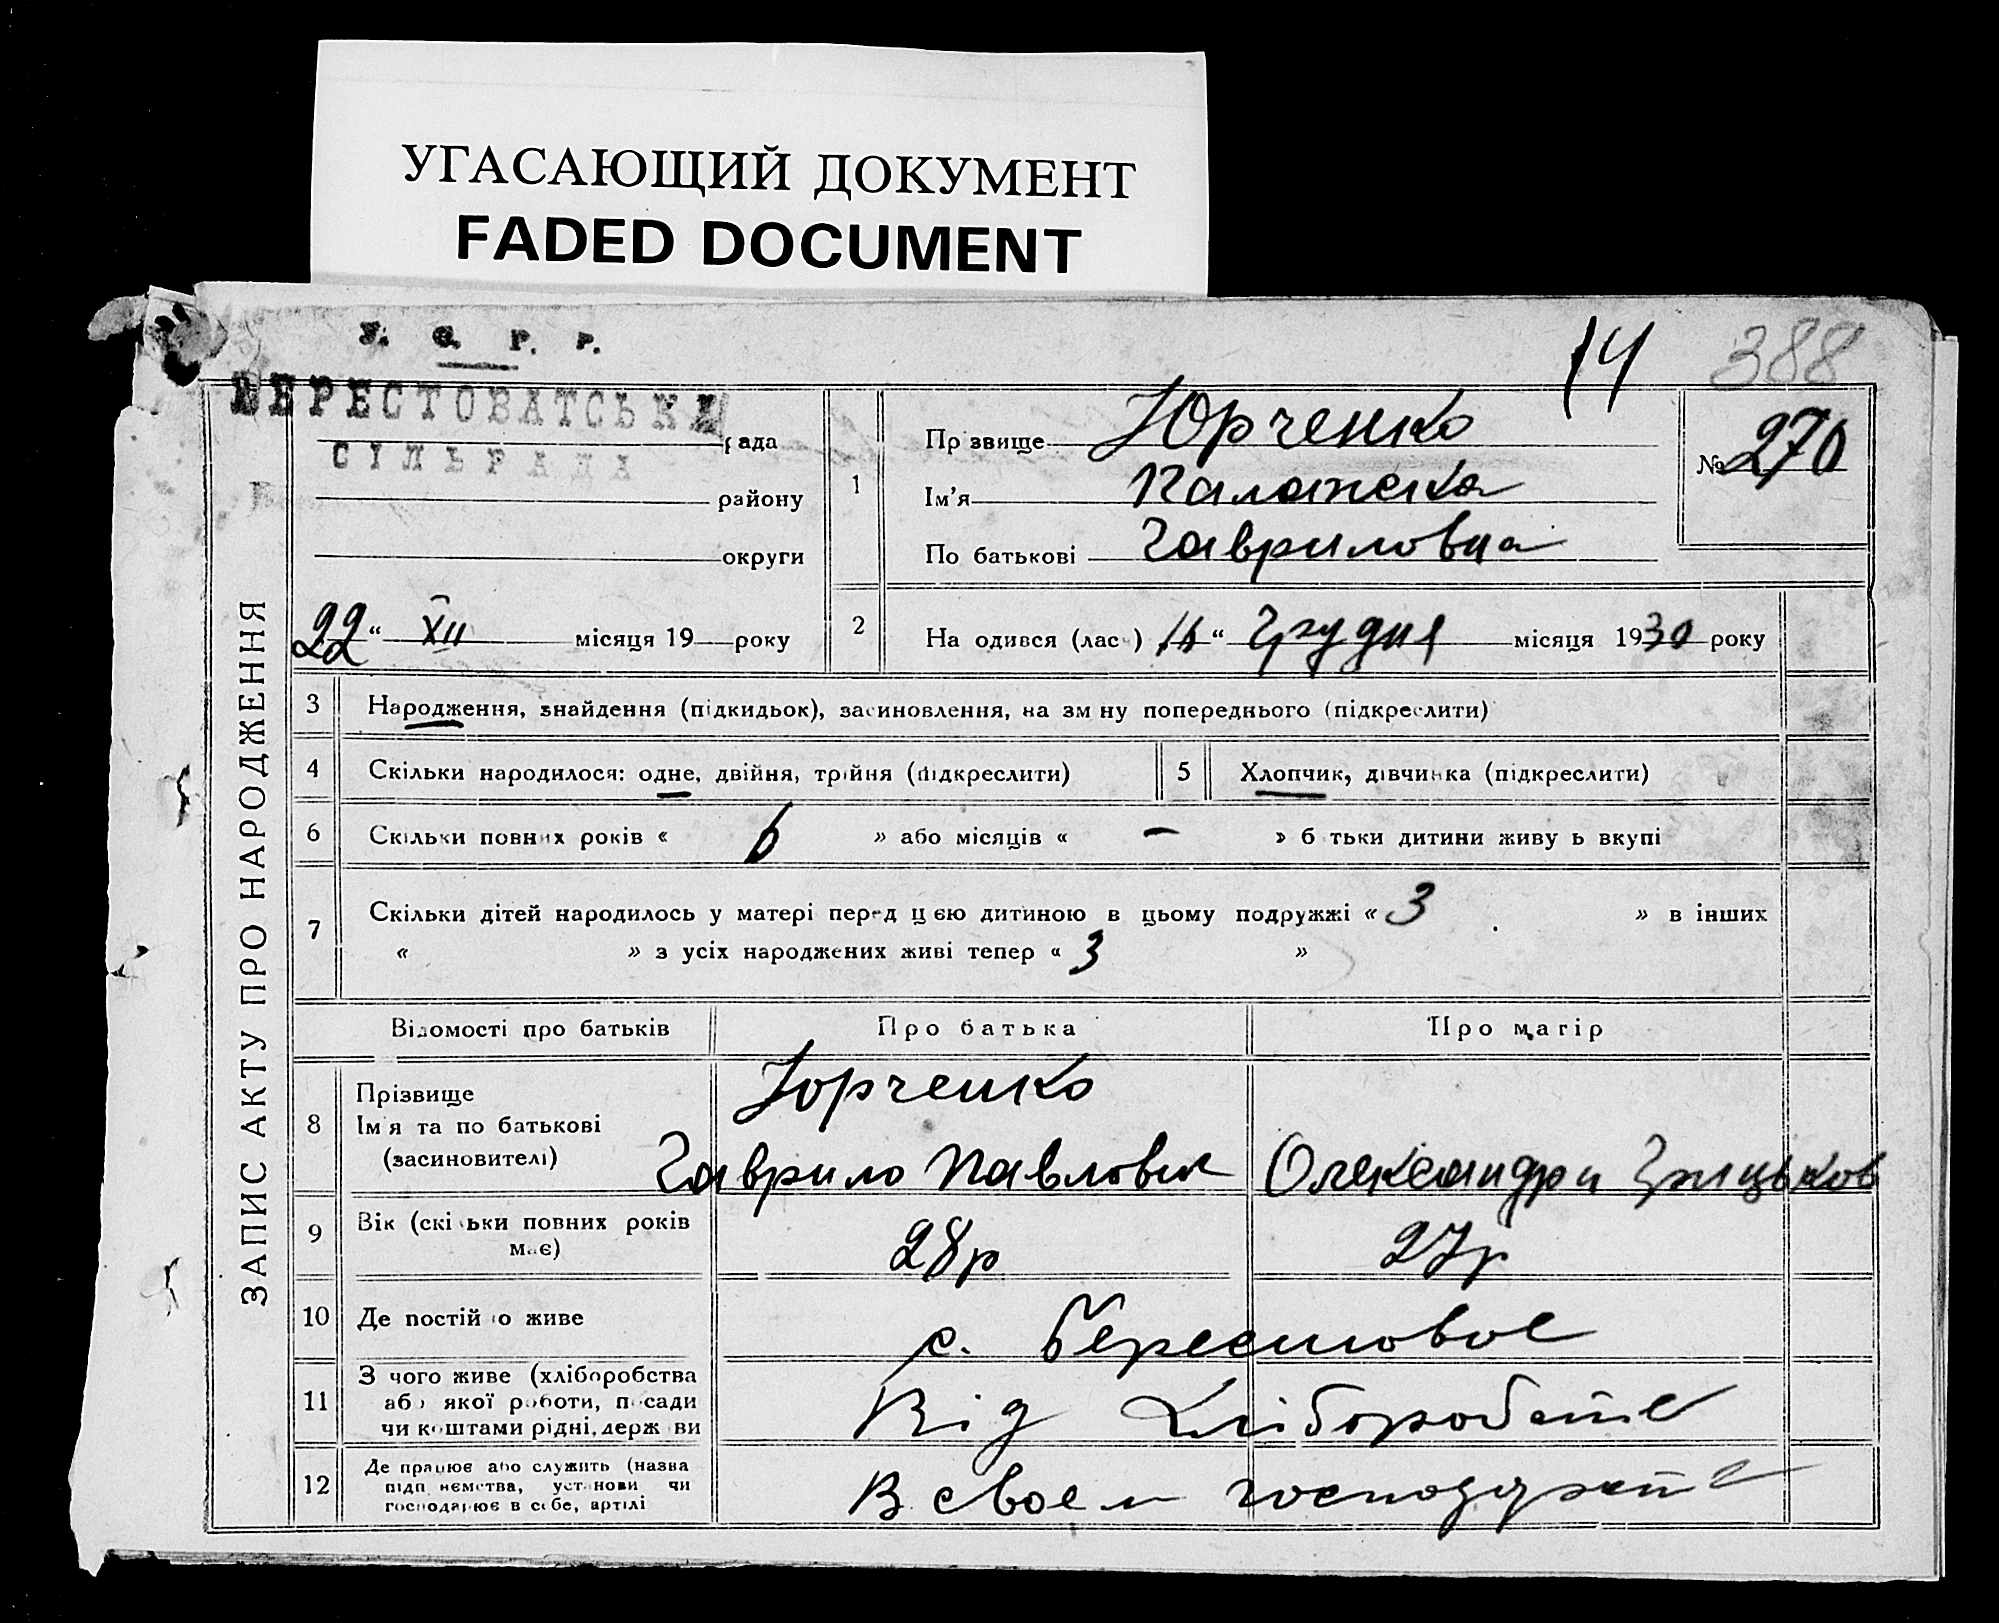 УГАСАЮЩИЙ ДОКУМЕНТ
FADED DOCUMENT
У. С. Р. Р.
14 388
БЕРЕСТОВАТСЬКА
рада
СІЛЬРАДА
району
округи
22 “ XII місяця 19 року
ЗАПИС АКТУ ПРО НАРОДЖЕННЯ
1 Пр звище Юрченко
Ім’я Палажка
По батькові Гавриловна
№ 270
2 На одився (лас ) “ Грудня місяця 1930 року
3 Народження, знайдення (підкидьок), засиновлення, на зм ну попереднього (підкреслити)
4 Скільки народилося: одне, двійня, трійня (підкреслити) 5 Хлопчик, дівчинка (підкреслити)
6 Скільки повних років « 6 » або місяців « – » б тьки дитини живу ь вкупі
7 Скільки дітей народилось у матері перед цією дитиною в цьому подружжі « 3 » в інших
« » з усіх народжених живі тепер « 3 »
Відомості про батьків Про батька Про матір
8 Прізвище
Ім я та по батькові
(засиновителі)
Юрченко
Гаврило Павлович Олександра Грицьков
9 Вік (скільки повних років
має)
28р 27р
10 Де постій о живе с. Берестовое
11 З чого живе (хліборобства
або якої роботи, посади
чи коштами рідні, держ ви
Від
12 Де працює або служить (назва
підп иємства, установи чи
господарює в себе, артілі
В своем